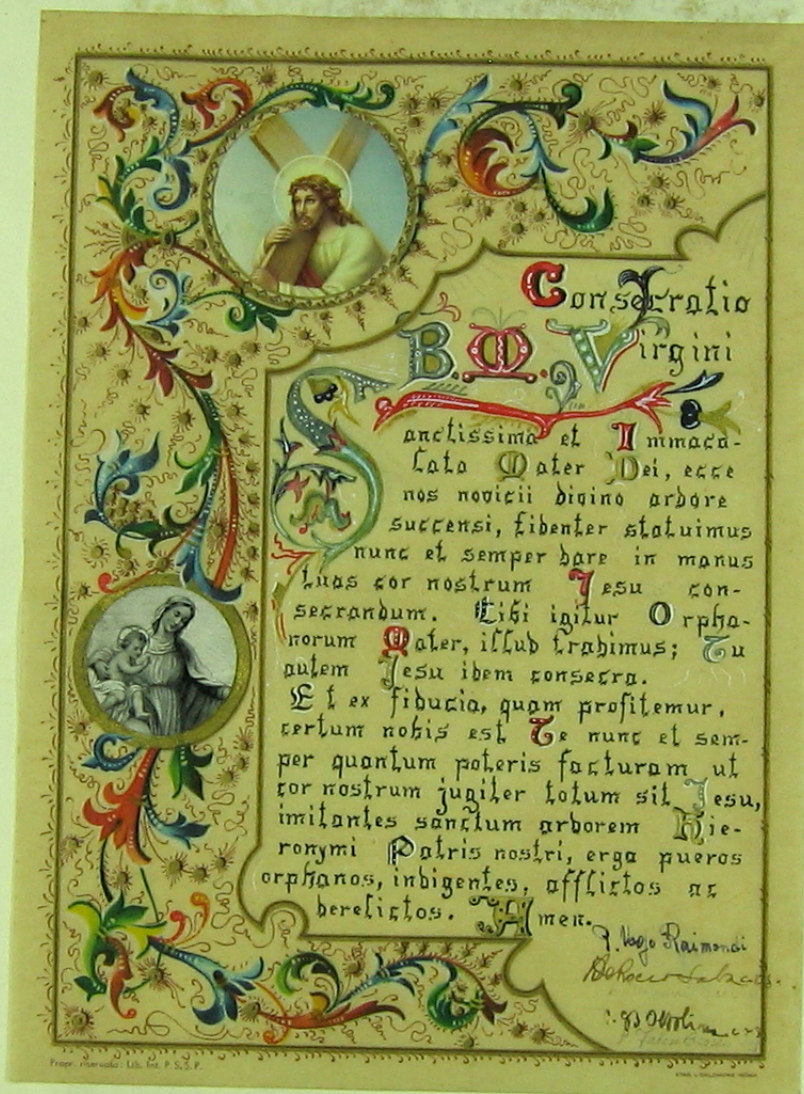 Consecratio
B. M. Virgini
Sanctissima et Immacu-
lata Mater Dei, ecce
nos novicii divino ardore
succensi, libenter statuimus
nunc et semper dare in manus
tuas cor nostrum Iesu con-
secrandum. Tibi igitur Orpha-
norum Mater, illud tradimus; Tu
autem Jesu idem consecra.
Et ex fiducia, quam profitemur,
certum nobis est Te nunc et sem-
per quantum poteris facturam ut
cor nostrum jugiter totum sit Jesu,
imitantes sanctum ardorem Hie-
ronymi Patris nostri, erga pueros
orphanos, indigentes, afflictos ac
derelictos. Amen.
Vago Raimondi
Propr. riservata: Lib. Int. P. S. S. P.